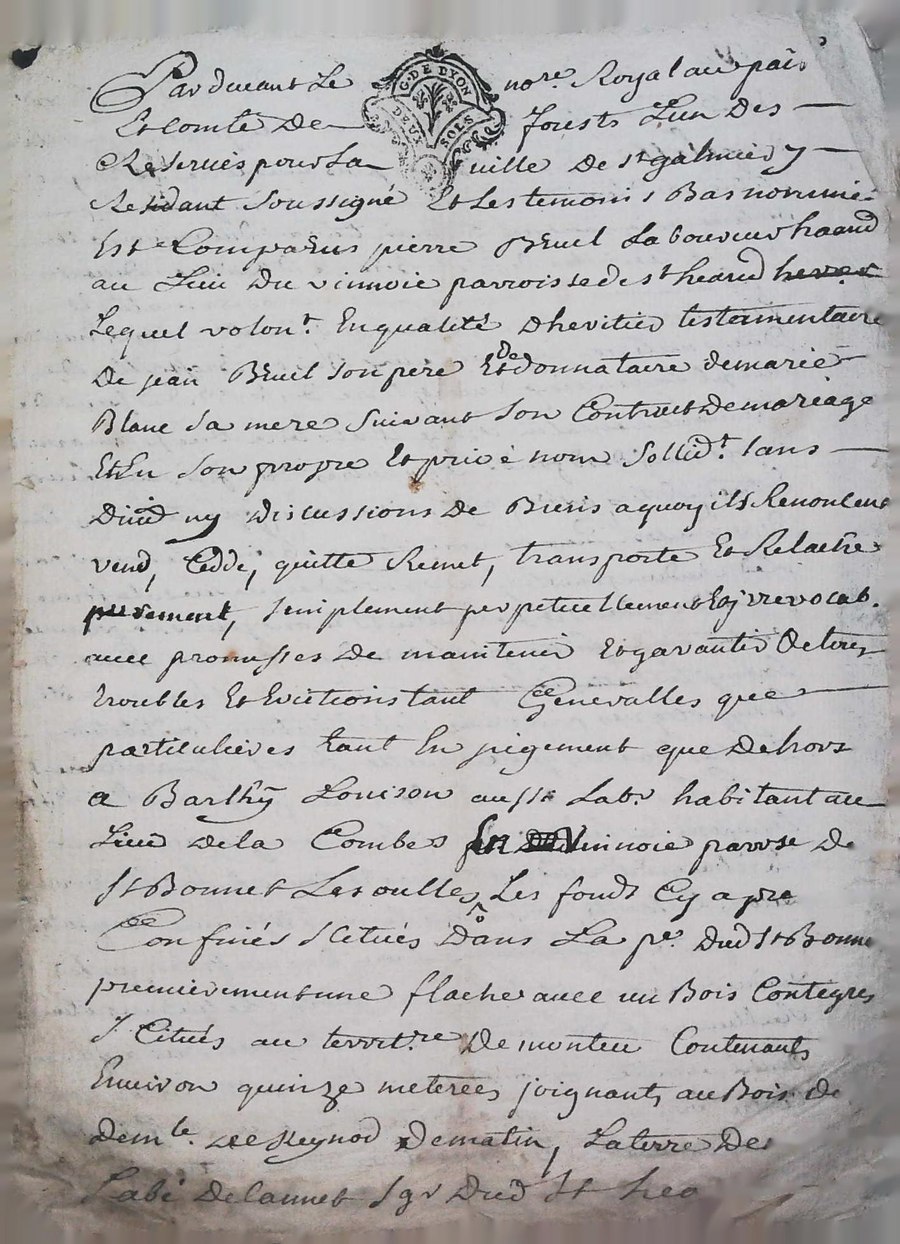 Pardevant Le nore. Royal au païs
G. DE LYON
DEUX SOLS
Et comté De forests L'un Des
Reservés pour La ville De st galmier y
Residant soussigné Et Les temoins Bas nommés
Est Comparus pierre Bruel Laboureur
au Lieu Du vinnoie parroisse de st heand
Lequel volont. En qualité D'heritier testamentaire
De jean Bruel son pere Et De donnataire de marie
Blanc sa mere suivant son Contract De mariage
Et En son propre Et privé nom sollidt. sans
Divid ny Discussions De Biens a quoy ils Renoncent
vend, Cedde, quitte Remet, transporte Et Relache
purement, simplement perpetuellement Et jrrevocab.
avec promesses De maintenir Et garantir De tous
troubles Et Evictions tant Generalles que
particulieres tant En jugement que Dehors
a Barthy Louison aussi Labr. habitant au
Lieu de la Combe vinnoie parrse De
St Bonnet Les oulles, Les fonds Cy apre
Confinés scitués Dans La pe. Dud St Bonne
premierement une flache avec un Bois Contegres
scitués au territ.re De monteu Contenants
Environ quinze meterées joignant, au Bois de
demle. De Reynod De matin, La terre De
Labé Delannet sgr Dud St hea